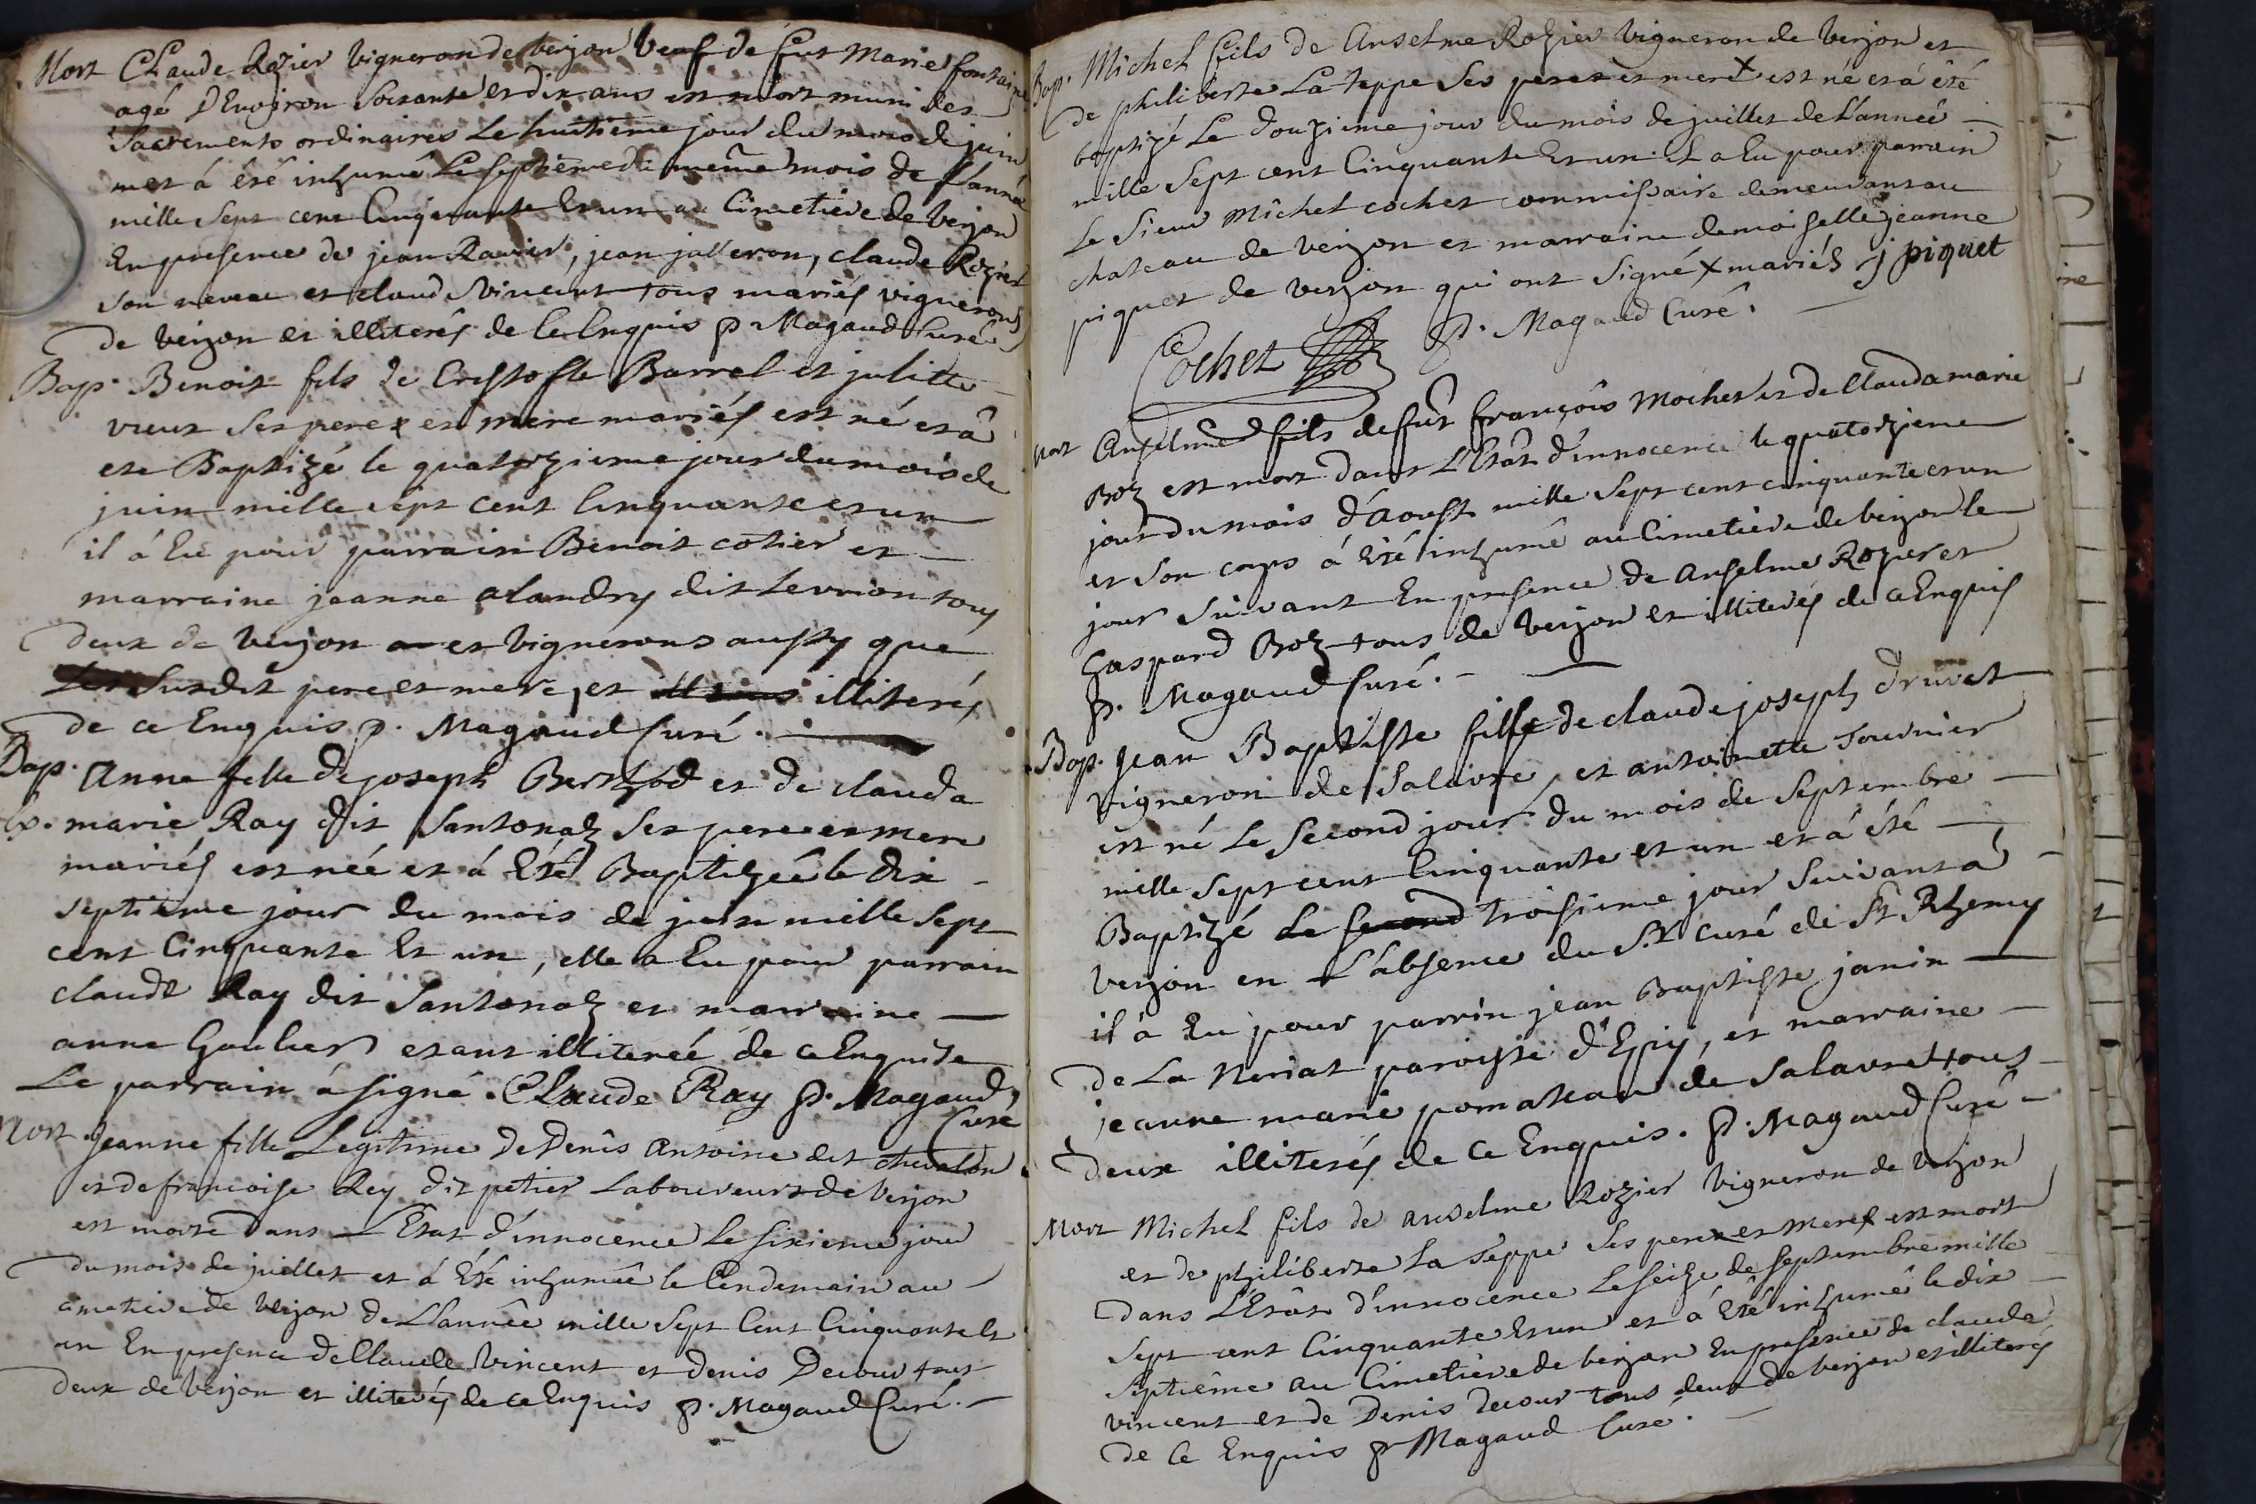 Mort Claude Rozier vigneron de verjon veuf de fut Marie fontaine
agé d'Environ soixante et dix ans est mort muni des
sacrements ordinaires Le huitieme jour du mois de juin
et á été inhumé Le septieme du même mois de l'année
mille sept cent Cinquante Et un au Cimetiere de verjon
En presence de jean Ravier, jean jasseron, claude Rozier
son neveu et claude vincent tous mariés vignerons
de verjon et illiterés de ce Enquis p. Magaud Curé
Bap. Benoit fils de Cristofle Barrel et juliette
vieux ses pere et mere mariés est né et â
ete Baptizé le quatorzieme jour du mois de
juin mille sept cent Cinquante et un
il á Eu pour parrain Benoit cotier et
marraine jeanne alandry dit Levrion tous
deux de verjon et vignerons aussy que
Les susdit pere et mere, et illiterés
de ce Enquis p. Magaud Curé.
Bap. Anne fille de joseph Berthod et de clauda
marie Ray dit Santonaz ses pere et mere
mariés est née et á Eté Baptizée le dix
septieme jour du mois de juin mille sept
cent Cinquante Et un, elle a Eu pour parrain
claude Ray dit Santonaz et marraine
anne Gaulier etant illiterée de ce Enquise
Le parrain á signé. Claude Ray p. Magaud,
Curé
Mort Jeanne fille Legitime de Denis Antoine dit chevalon
et de francoise Rey dit petier Laboureurs de verjon
est morte dans L'Etat d'innocence le sixieme jour
du mois de juillet et á Eté inhumée le lendemain au
cimetiere de verjon de L'année mille sept Cent Cinquante Et
un En presence de Claude vincent et denis Decour tous
deux de verjon et illiterés de ce Enquis p. Magaud Curé.
Bap. Michel fils de Anselme Rozier vigneron de verjon et
de philiberte La teppe ses pere et mere x est né et á été
baptizé Le douzieme jour du mois de juillet de L'année
mille sept cent Cinquante Et un. Et a Eu pour parrain
Le sieur Michel cochet commissaire demeurant au
chateau de verjon et marraine demoiselle jeanne
piquet de verjon qui ont signé x mariés j piquet
Cochet p. Magaud Curé.
Mort Anselme fils de fut françois Mochet et de Claudamarie
Boz est mort dans L'Etât d'innocence le quatorzieme
jour du mois d'Aoust mille sept cent cinquante et un
et son corps á Eté inhumé au Cimetiere de verjon le
jour suivant En presence de Anselme Rozier et
Gaspard Boz tous de verjon et illiterés de ce Enquis
p. Magaud Curé.
Bap. Jean Baptiste fils de claude joseph druvet
vigneron de Salavre, et antoinette tournier
est né Le second jour du mois de Septembre
mille sept cent Cinquante et un et á été
Baptizé Le second troisieme jour suivant á
verjon en L'absence du S.r curé de St Rhemy
il â Eu pour parrin jean Baptiste janin
de La Neriat paroisse d'Epy, et marraine
jeanne marie pomateau de Salavre tous
deux illiterés de ce Enquis. p. Magaud Curé
Mort Michel fils de anselme Rozier vigneron de verjon
et de philiberte La teppe ses pere et mere est mort
dans L'Etât d'innocence Le seize de septembre mille
sept cent Cinquante Et un et á Eté inhumé le dix
septiême au Cimetiere de verjon En presence de claude
vincent et de Denis decour tous deux de verjon et illiterés
de Ce Enquis p Magaud Curé.